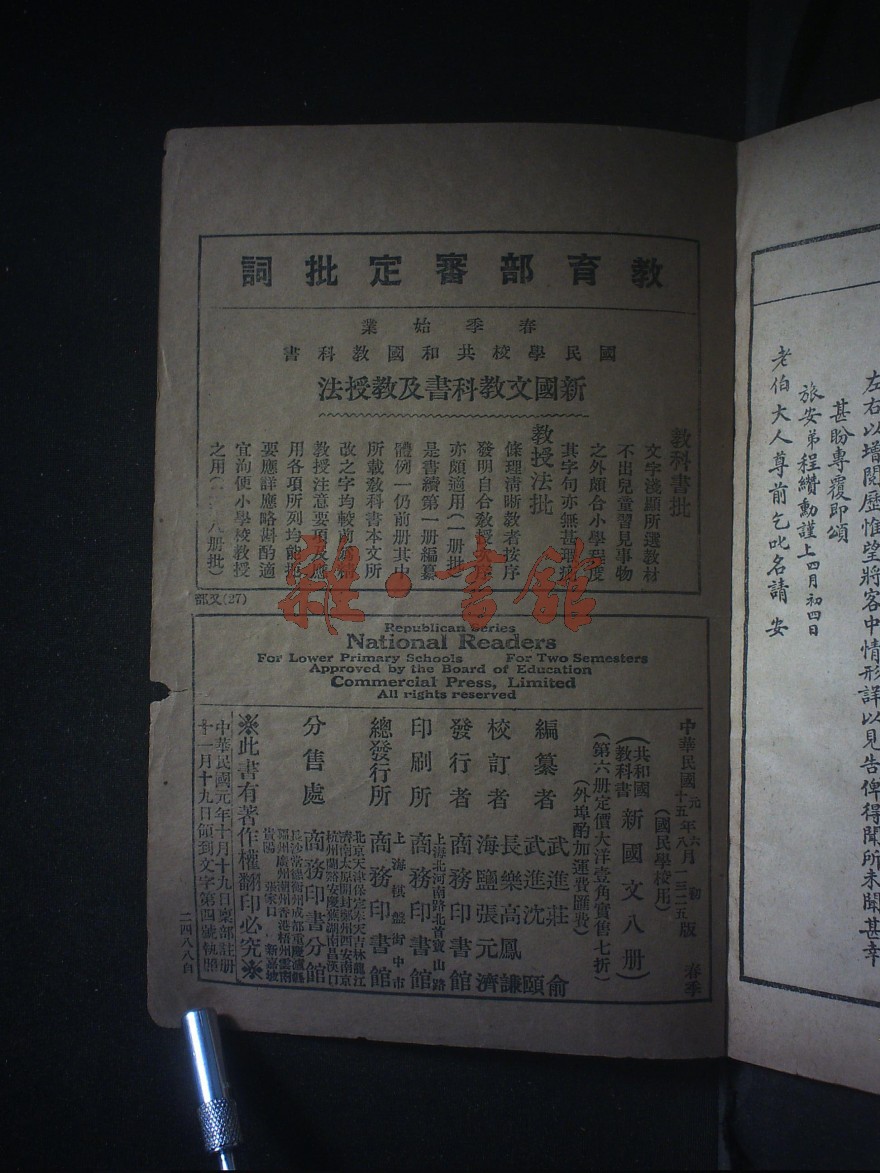 左右以增閱歷惟望將客中情形詳以見告俾得聞所未聞甚幸
甚盼專覆即頌
旅安弟程纘勳謹上四月初四日
老伯大人尊前乞叱名請安
教育部審定批詞
春季始業
國民學校共和國教科書
新國文教科書及教授法
教科書批
文字淺顯所選教材
不出兒童習見事物
之外頗合小學程度
其字句亦無甚瑕疵
教授法批
條理清晰教者按序
發明自合教授次序
亦頗適用(一册批)
是書續第一册編纂
體例一仍前册其中
所載教科書本文所
改之字均較前
教授注意要項及應
用各項所列均能
要應詳應略斟酌適
宜洵便小學校教授
之用(八册批)
(27)又部
Republican Series
National Readers
For Lower Primary Schools For Two Semesters
Approved by the Board of Education
Commercial Press, Limited
All rights reserved
中華民國元年六月初版
十五年八月一三二五版
春季
(國民學校用)
(共和國教科書新國文八册)
(第六册定價大洋壹角實售七折)
(外埠酌加運費匯費)
編纂者 武進莊俞
武進沈頤
校訂者 長樂高鳳謙
海鹽張元濟
發行者 商務印書館
上海北河南路北首寶山路
印刷所 商務印書館
上海棋盤街中市
總發行所 商務印書館
北京天津保定奉天吉林龍江
濟南太原開封鄭州西安南京
杭州蘭谿安慶蕪湖南昌漢口
分售處 商務印書分館
長沙常德衡州成都重慶瀘縣
福州廣州潮州香港梧州雲南
貴陽 張家口 新嘉坡
※此書有著作權翻印必究※
中華民國元年十月十九日稟部註册
十一月十九日領到文字第四號執照
二四八八自
雜·書館